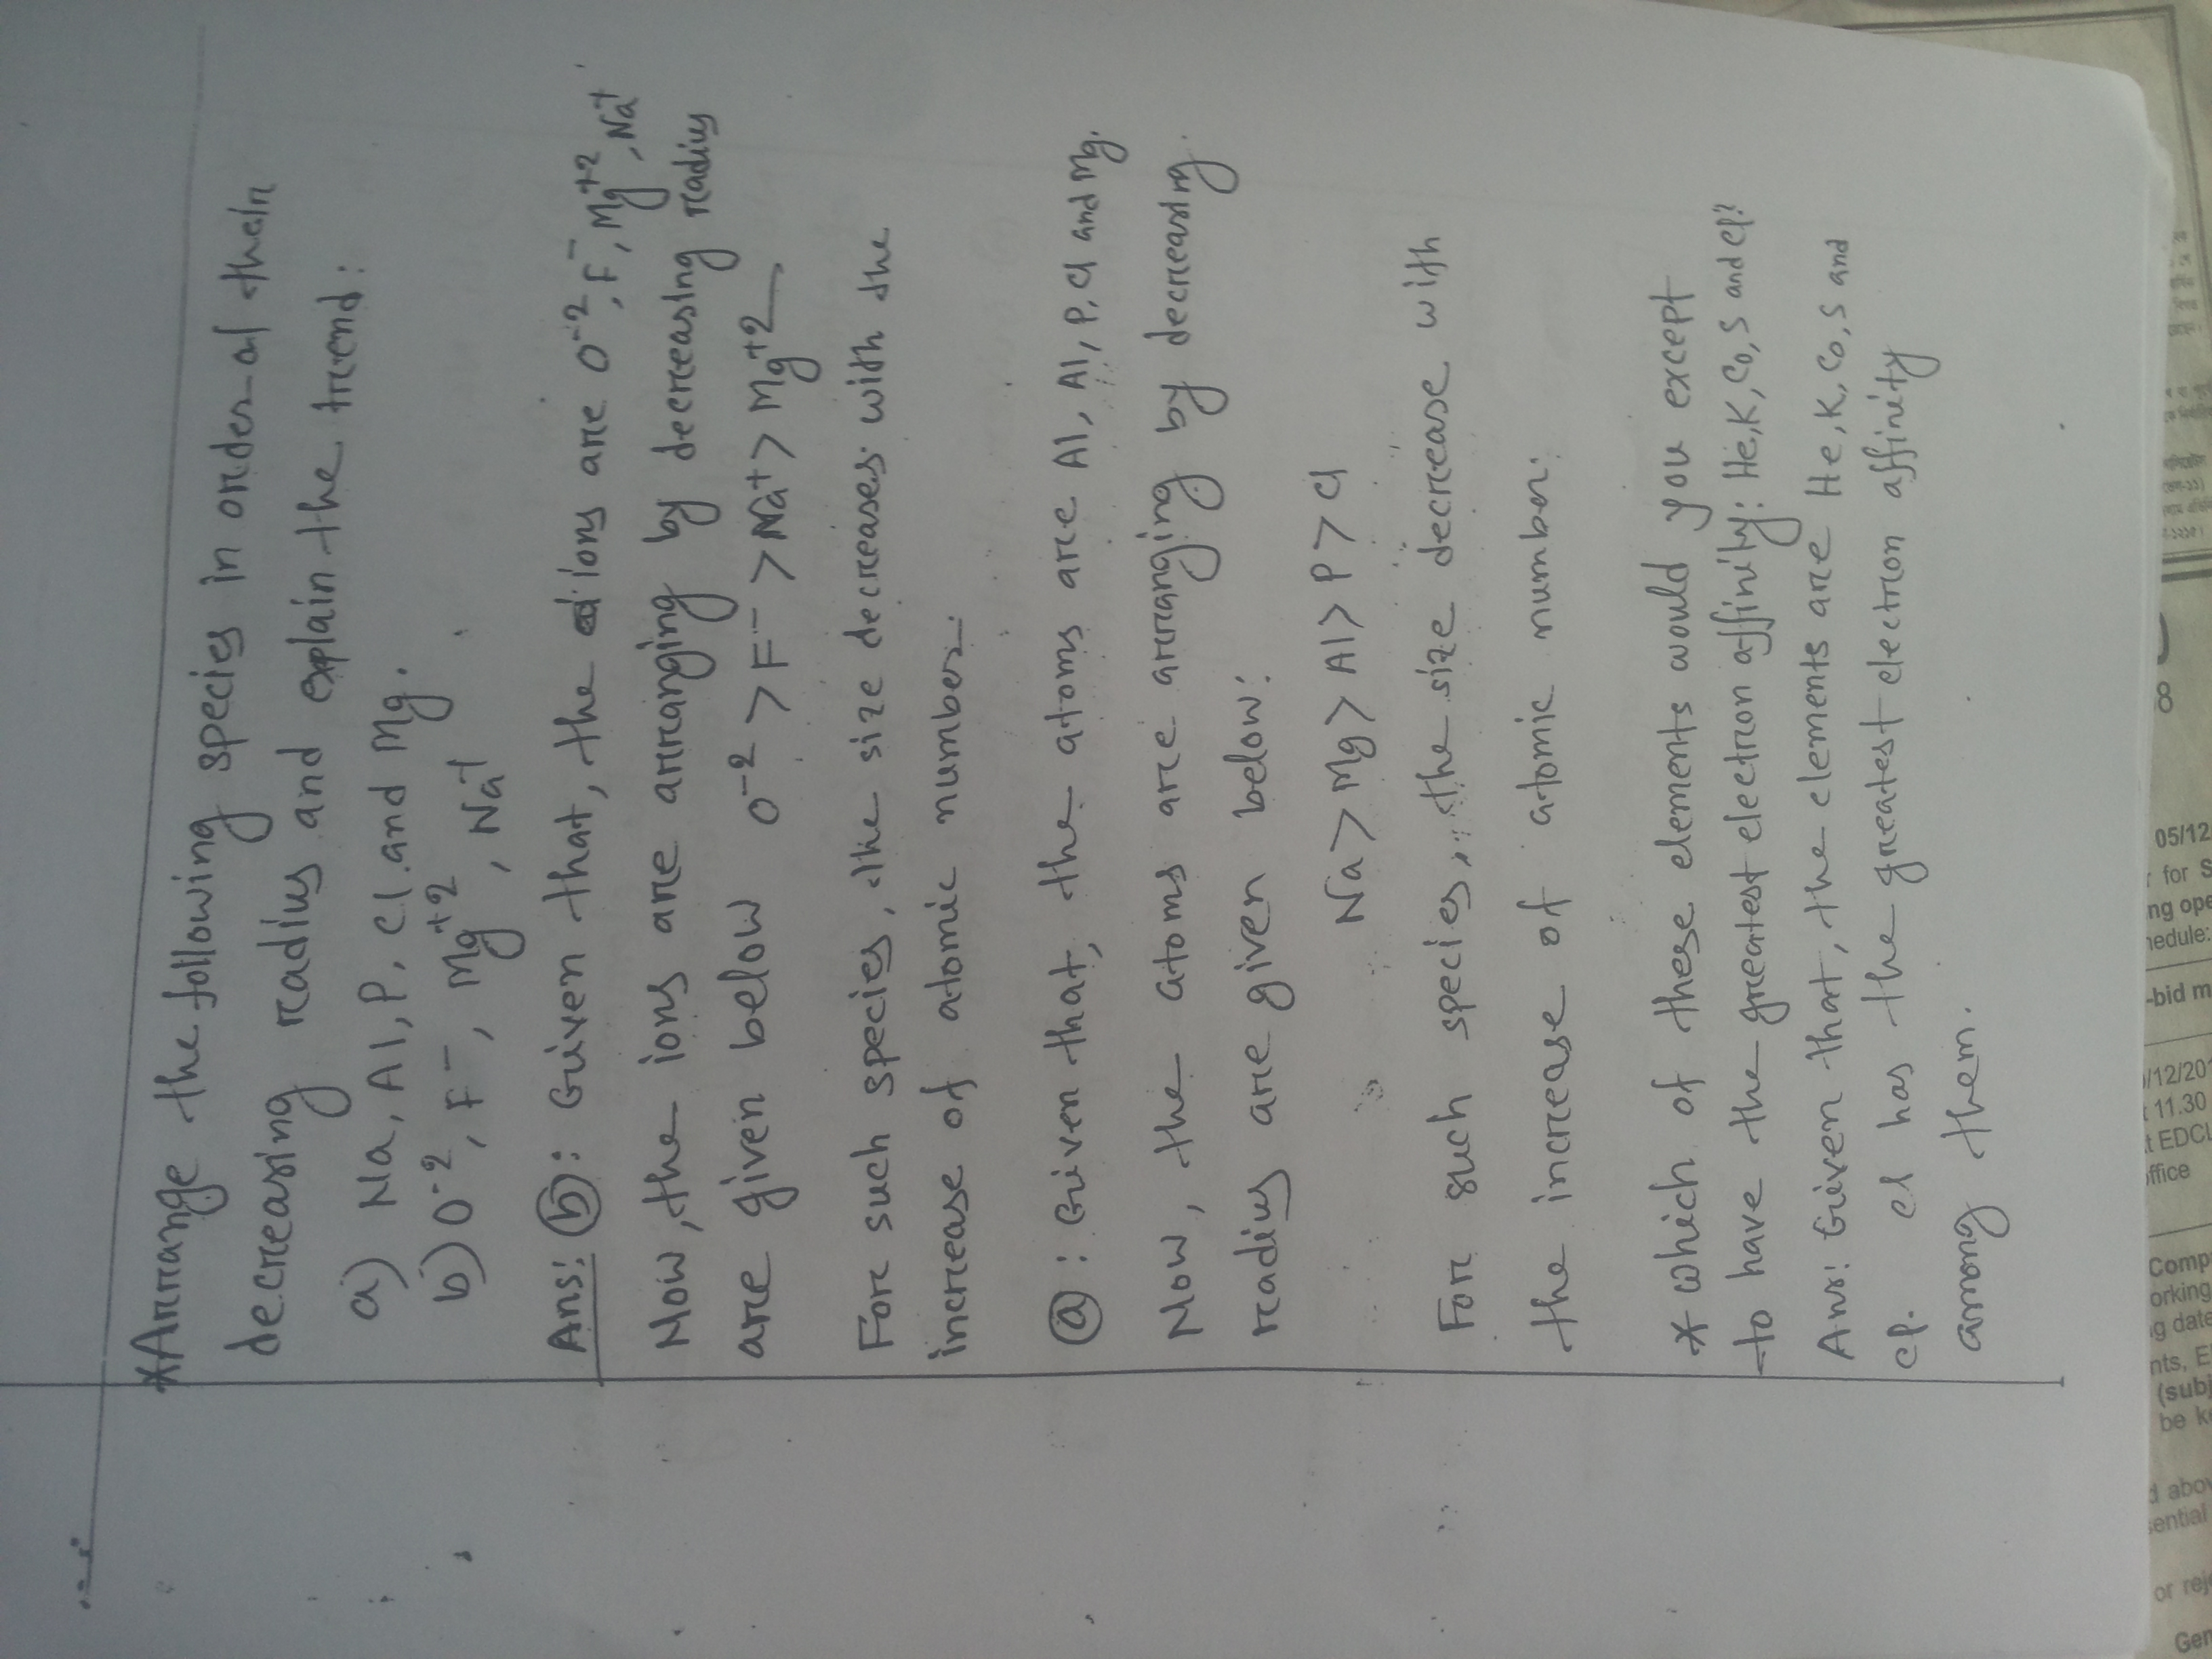 *Arrange the following species in order of their
decreasing radius and explain the trend:
a) Na, Al, P, Cl and Mg.
b) O⁻², F⁻, Mg⁺², Na⁺
Ans: ⓑ: Given that, the ions are O⁻², F⁻, Mg⁺², Na⁺
Now, the ions are arranging by decreasing radius
are given below O⁻² > F⁻ > Na⁺ > Mg⁺²
For such species, the size decreases with the
increase of atomic number.
ⓐ: Given that, the atoms are Al, Al, P, Cl and Mg.
Now, the atoms are arranging by decreasing
radius are given below:
Na > Mg > Al > P > Cl
For such species, the size decrease with
the increase of atomic number.
* which of these elements would you except
to have the greatest electron affinity: He, K, Co, S and Cl?
Ans: Given that, the elements are He, K, Co, S and
Cl. Cl has the greatest electron affinity
among them.
05/12
for S
ng ope
nedule:
-bid m
/12/20
11.30
t EDCL
ffice
Comp
orking
g date
nts, E
(subj
be k
d abov
sential
or rej
Gen
8